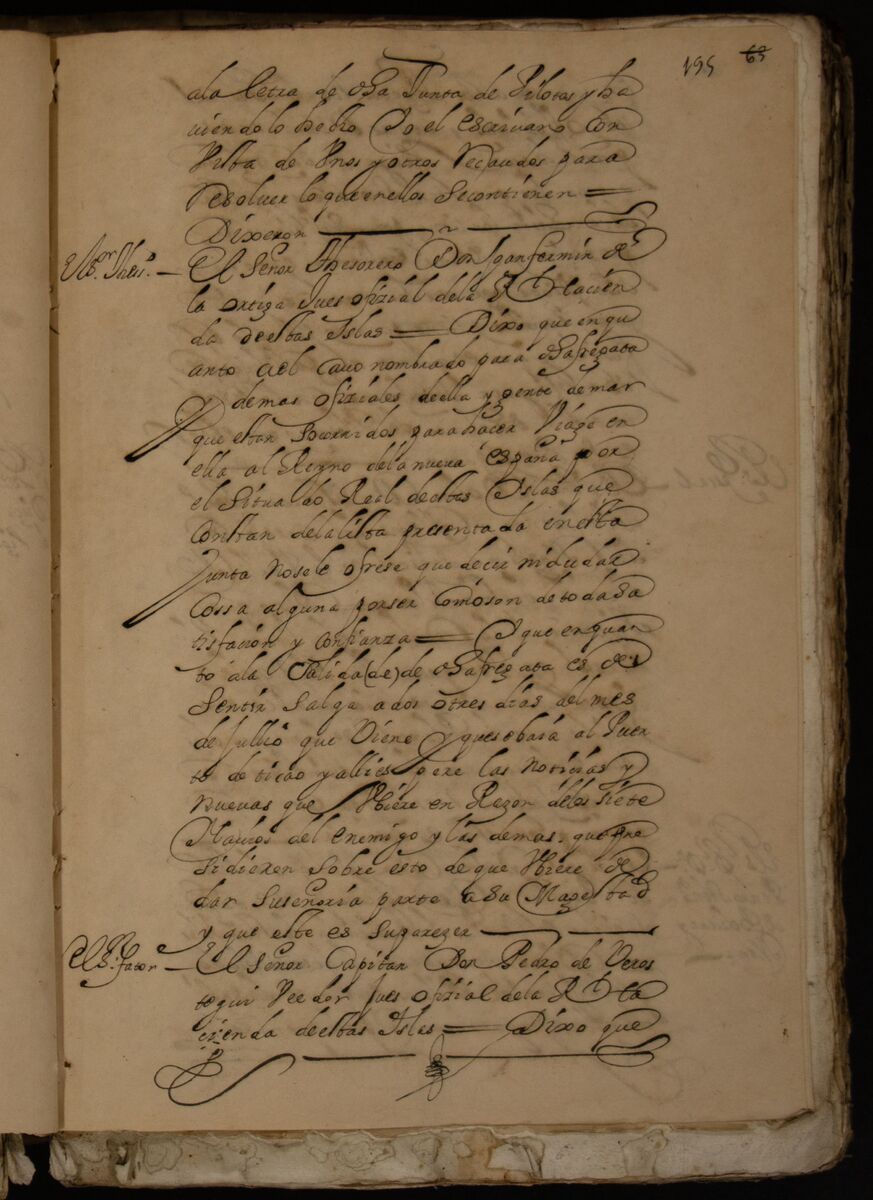 195 65
ala letra de dha Junta de Pilotos y ha
viendolo hecho Yo el escrivano Con
Vista de Vnos y otros Recaudos para
Resoluer lo que enellos Secontienen =
Dixeron
El Sor. Thesro. — El Señor Thesorero Don Joan fermin de
la ortiga Jues ofizial dela Rl Hacien
da destas Islas = Dixo que en qu
anto ael Cavo nombrado para dha fregata
y demas ofiziales della y gente de mar
que estan para hacer Viage en
ella al Reyno dela nueva españa por
el Situado Real destas Islas que
Constan dela lista presentada en esta
Junta nosele ofrese que decir ni dudar
Cossa alguna por ser Como son de toda Sa
tisfacion y Confianza = Y que en quan
to ala Salida (de) de dha fregata es de
Sentir Salga a dos o tres dias del mes
de Jullio que Viene y que se baia al Puer
to de ticao y alli espere las noticias y
nuevas que Vbiere en Razon delos siete
Navios del enemigo y las demas que
sidieren Sobre esto de que Vbiere de
dar Suseñoria parte a Su Magestad
y que este es Suparezer
El Sr. fator — El Señor Capitan Don Pedro de Veros
tegui Veedor Jues ofizial dela Rl Ha
cienda destas Islas = Dixo que